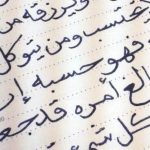 ويرزقه من
يحتسب ومن يتوكل
فهو حسبه إن
لغ أمره قد جعـ
لكل شي